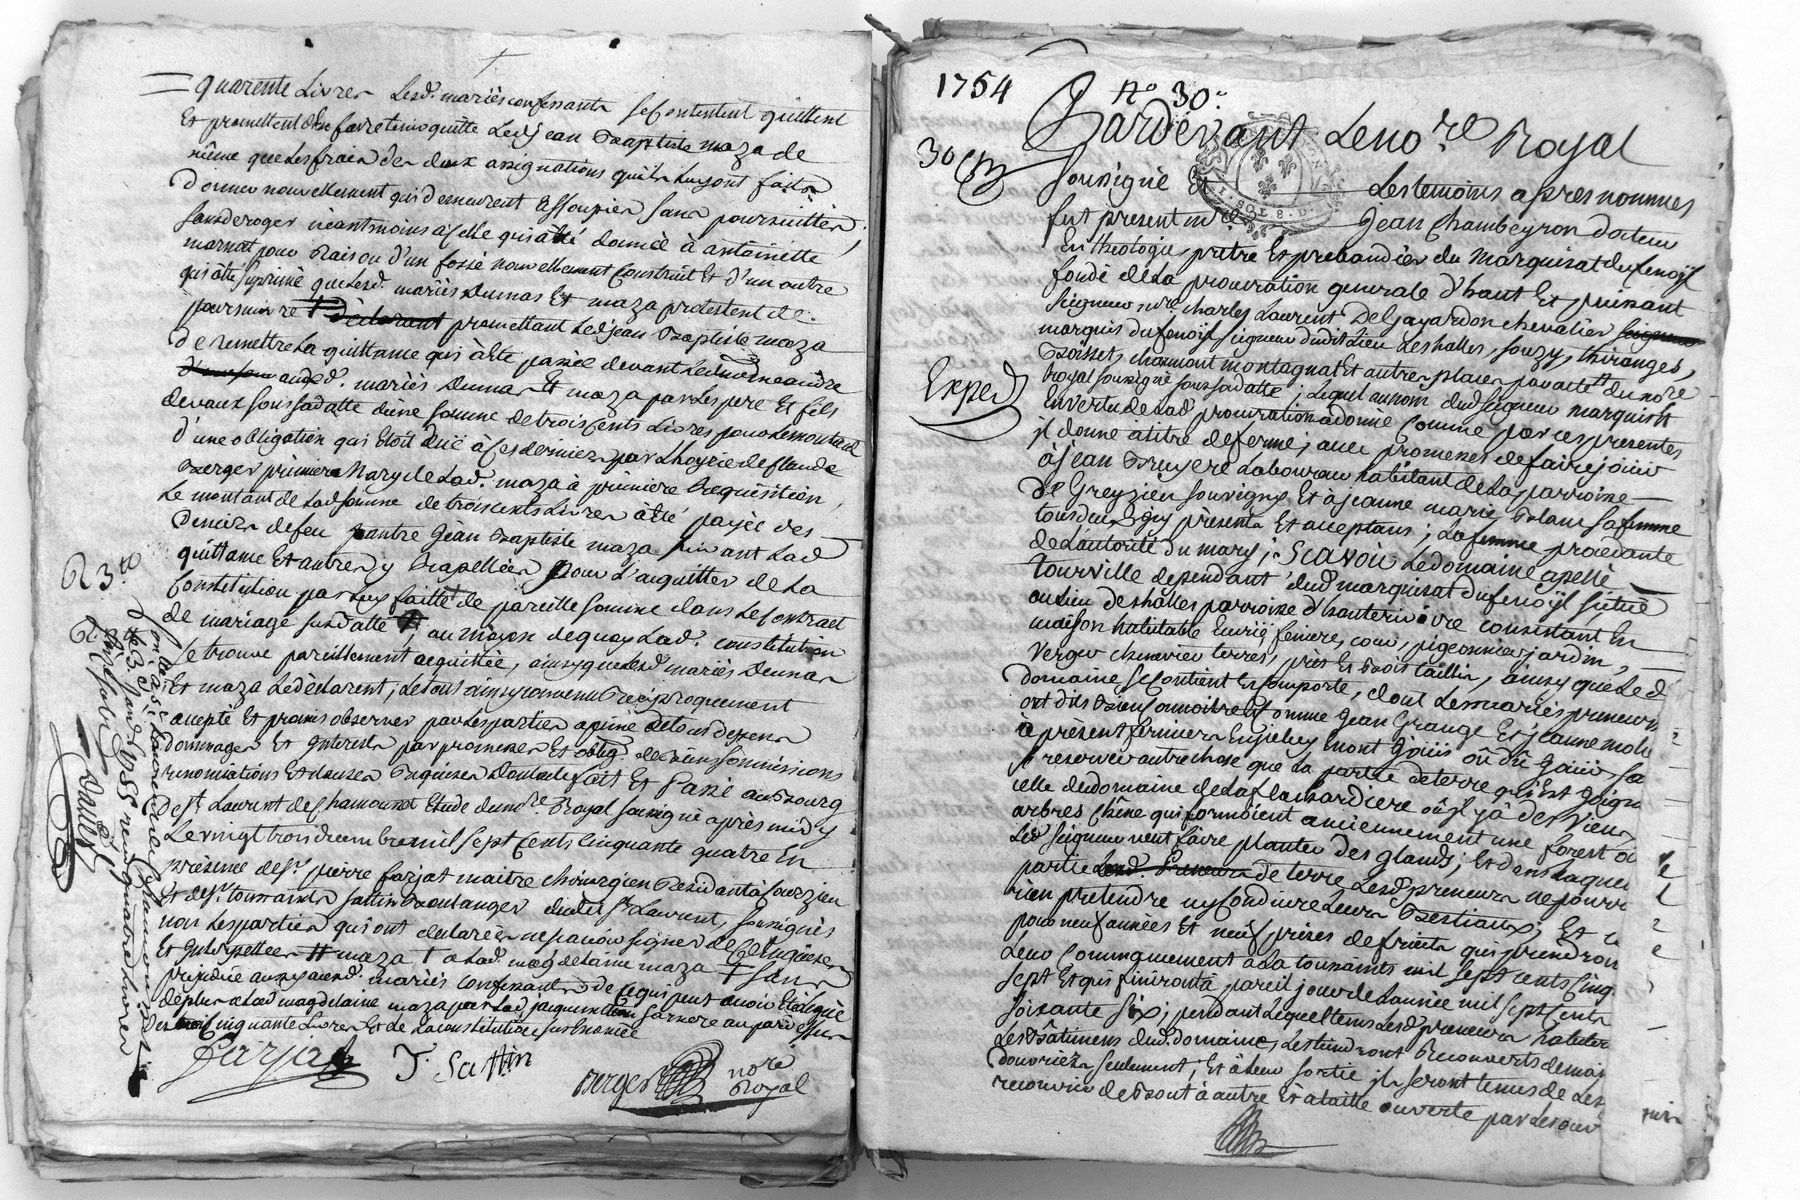 quarente Livres Lesd. mariés confessants se contentent quittent
Et promettent d'en faire tenir quitte Led. jean Baptiste maza de
même que les frais des deux assignations qu'ils luy ont faites
donner nouvellement qui demeurent assoupies sans poursuittes,
sans deroger néantmoins à celle qui a été donnée à antoinette
marnat pour Raison d'un fossé nouvellement Construit Et d'un autre
qui a été suprimé que Lesd. mariés Dumas Et maza protestent de
poursuivre promettant Led. jean Baptiste maza
de remettre La quittance qui a été passée devant Led.
auxd. mariés Dumas Et maza par Les pere Et fils
devaux sous sa datte d'une somme de trois Cents Livres pour le montant
d'une obligation qui Etoit Due à Ces derniers par L'hoyrie de Claude
Berger premier Mary de Lad. maza à premiere Requisition,
Le montant de Lad. somme de trois cents Livres a été payée des
deniers de feu autre Jean Baptiste maza suivant Lad.
quittance Et autres y Rapellées pour L'aquitter de La
Constitution par Luy faitte de pareille somme dans Le Contract
de mariage susdatté, au moyen de quoy Lad. constitution
se trouve pareillement acquittée, ainsy que Lesd. mariés Dumas
Et maza Le déclarent, Le tout ainsy convenu Reciproquement
accepté Et promis observer par Les parties a peine de tous depens
dommages Et Interests par promesses Et oblig. de biens soumissions
renonciations Et clauses Requises dont acte fait Et Passé au Bourg
de St. Laurent de Chamousset Etude du no.re Royal soussigné après midy
Le vingt trois decembre mil sept Cents Cinquante quatre En
présence de Sr. pierre farjat maitre chirurgien Residant à
Et de Sr. toussaints sattin Boulanger dudit St. Laurent, soussignés
non Les parties qui ont declaré ne sçavoir signer de Ce Enquises
Et Interpellées maza a Lad. magdelaine maza sans
préjudice auxd. mariés confessants de Ce qui peut avoir Eté légué
de plus a Lad. magdelaine maza par Lad.
Cinquante Livres Et de La constitution
Farjat
T. Sattin
Berger
no.re Royal
1754
N.° 30.
30
Exped
Pardevant Le no.re Royal
soussigné Et Les temoins apres nommés
fut present m.re Jean Chambeyron docteur
En theologie, prêtre Et prebandier du Marquisat du fenoÿl
fondé de La procuration generale d'haut Et puissant
seigneur m.re charles Laurent De Gayardon chevalier
marquis du fenoÿl seigneur dudit Lieu Les halles, souzy, thiranges,
Boisset, chaumont montagnat Et autres places par acte du no.re
Royal soussigné sous sa datte; Lequel au nom dud. seigneur marquis Et
En vertu de Lad. procuration a donné Comme par ces presentes
Il donne à titre de ferme, avec promesses de faire jouir
à jean Bruyere Laboureur habitant de La parroisse
de Greyzieu souvigny Et à jeanne marie sa femme
tous deux Icy présents Et acceptans; La femme procédante
de L'autorité du mary; Sçavoir Le domaine apellé
Tourville dependant dud. marquisat du fenoÿl situé
au Lieu des halles parroisse d'hauterivoire consistant En
maison habitable Ecurie feniere, cour, pigeonnier jardin,
verger cheneviere terres, prés Et Bois taillis, ainsy que Led.
domaine se Contient Et Comporte, dont Les mariés preneurs
ont dit Bien connoitre Et comme Jean Grange Et jeanne
à présent fermiers En jouissent ont joui ou dû jouir sans
reserver autre chose que La partie de terre qui Est joignant
celle du domaine de La flachardiere où Il y a des vieux
arbres Chêne qui formoient anciennement une forest
Led. seigneur veut faire planter des glands; Et dans Laquelle
partie de terre Lesd. preneurs ne pourront
rien pretendre ny Conduire Leurs Bestiaux; Et
pour neuf années Et neuf prises de fruits qui prendront
Leur Commencement a La toussaints mil sept cents Cinq.
sept Et qui finiront à pareil jour de L'année mil sept Cents
soixante six; pendant Lequel tems Lesd. preneurs
Les Bâtiments dud. domaine, Les tiendront Recouverts de main
d'ouvriers seulement; Et à Leur sortie ils seront tenus de Les
recouvrir de Bout à autre Et a taille ouverte par Des ouv